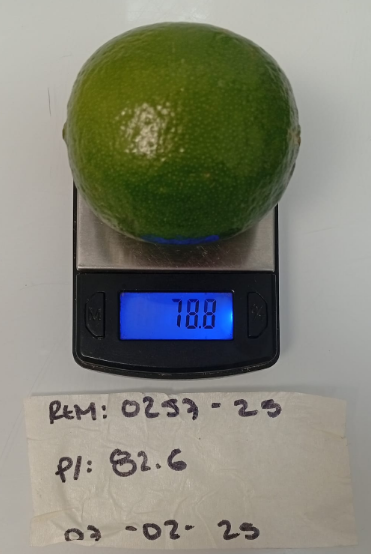 78.8
REM: 0257-25
P/: 82.6
07-02-25